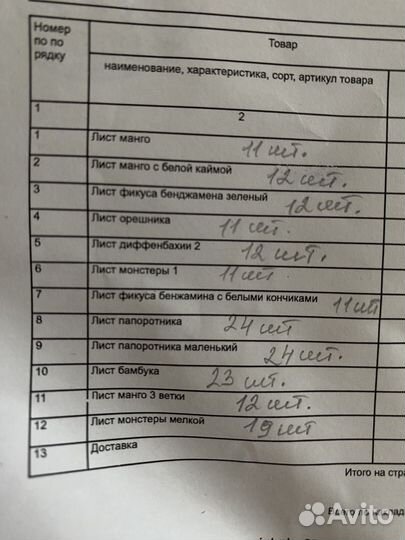 Номер
по по
рядку
Товар
наименование, характеристика, сорт, артикул товара
1 2
1 Лист манго 11 шт.
2 Лист манго с белой каймой 12 шт.
3 Лист фикуса бенджамена зеленый 12 шт.
4 Лист орешника 11 шт.
5 Лист диффенбахии 2 12 шт.
6 Лист монстеры 1 11 шт.
7 Лист фикуса бенжамина с белыми кончиками 11 шт
8 Лист папоротника 24 шт
9 Лист папоротника маленький 24 шт.
10 Лист бамбука 23 шт.
11 Лист манго 3 ветки 12 шт.
12 Лист монстеры мелкой 19 шт
13 Доставка
Итого на стра
Всего по наклад
Avito